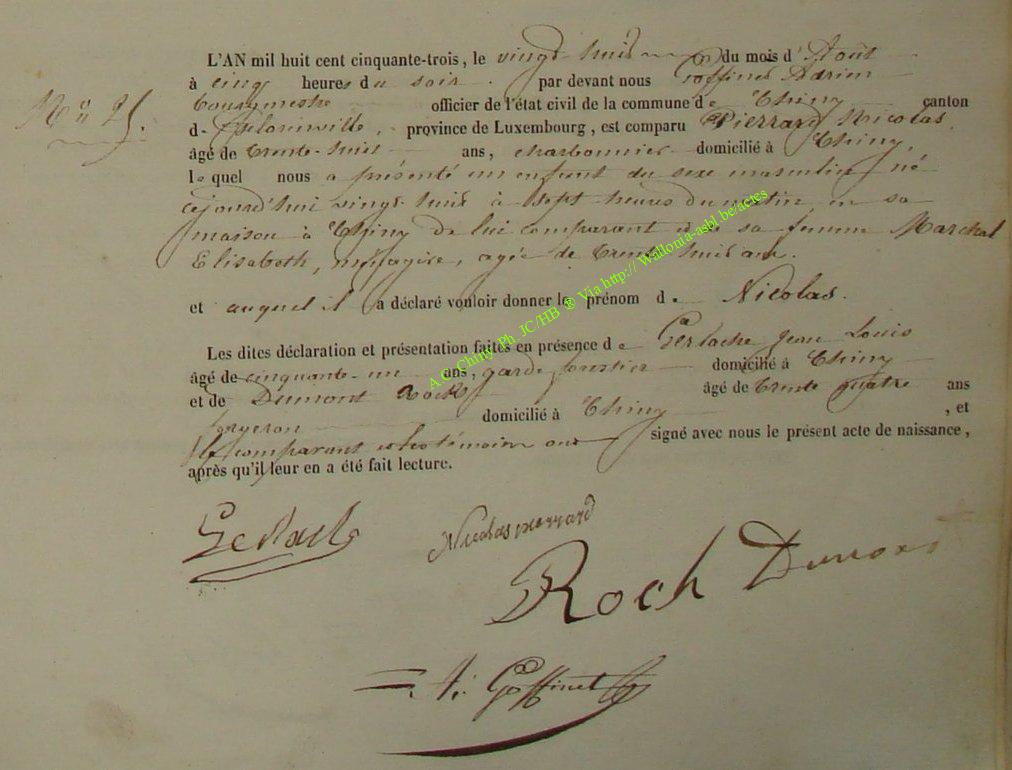 L'AN mil huit cent cinquante-trois, le vingt huit du mois d'Août
à cinq heures du soir par devant nous Goffinet Adrien
Bourgmestre officier de l'état civil de la commune de Chiny canton
de Florenville, province de Luxembourg, est comparu Pierrard Nicolas,
Nº 25.
âgé de trente-huit ans, charbonnier domicilié à Chiny,
lequel nous a présenté un enfant du sexe masculin né
cejourd'hui vingt-huit à sept heures du matin en sa
maison à Chiny de lui comparant et de sa femme Marchal
Elisabeth, ménagère, agée de trente huit ans.
et auquel il a déclaré vouloir donner le prénom de Nicolas.
Les dites déclaration et présentation faites en présence de Gerlache Jean Louis
âgé de cinquante-un ans, garde forestier domicilié à Chiny
et de Dumont Roch âgé de trente quatre ans
forgeron domicilié à Chiny , et
le comparant et les témoins ont signé avec nous le présent acte de naissance,
après qu'il leur en a été fait lecture.
A.C. Chiny Ph JC/HB ® Via http:// Wallonia-asbl.be/actes
Gerlache
Nicolas pierrard
Roch Dumont
A. Goffinet